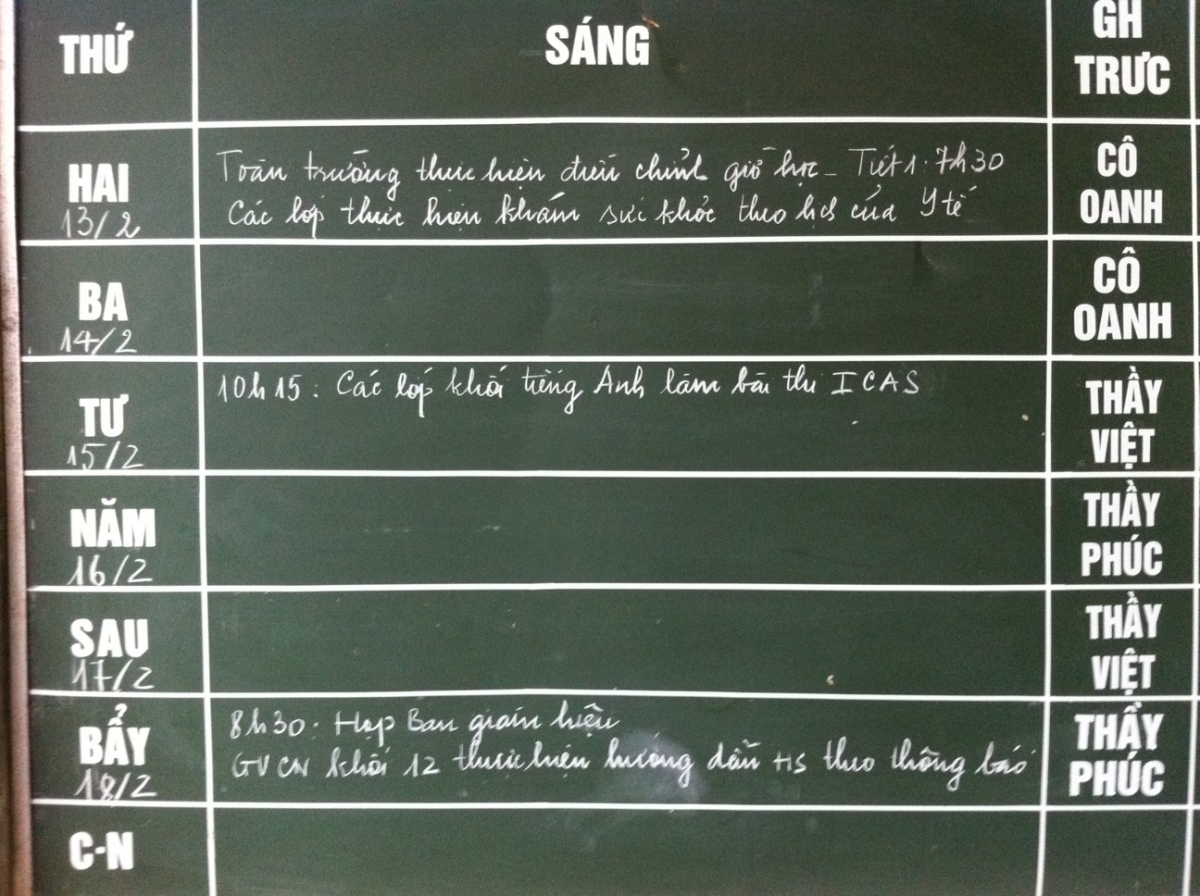 THỨ
SÁNG
GH
TRƯC
HAI
13/2
Toàn trường thực hiện điều chỉnh giờ học - Tiết 1: 7h30
Các lớp thực hiện khám sức khỏe theo lịch của Y tế
CÔ
OANH
BA
14/2
CÔ
OANH
TƯ
15/2
10h15: Các lớp khối tiếng Anh làm bài thi ICAS
THẦY
VIỆT
NĂM
16/2
THẦY
PHÚC
SAU
17/2
THẦY
VIỆT
BẨY
18/2
8h30: Họp Ban giám hiệu
GVCN khối 12 thực hiện hướng dẫn HS theo thông báo
THẦY
PHÚC
C-N